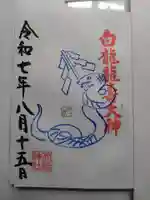 白龍龍乃大神
令和七年八月十五日